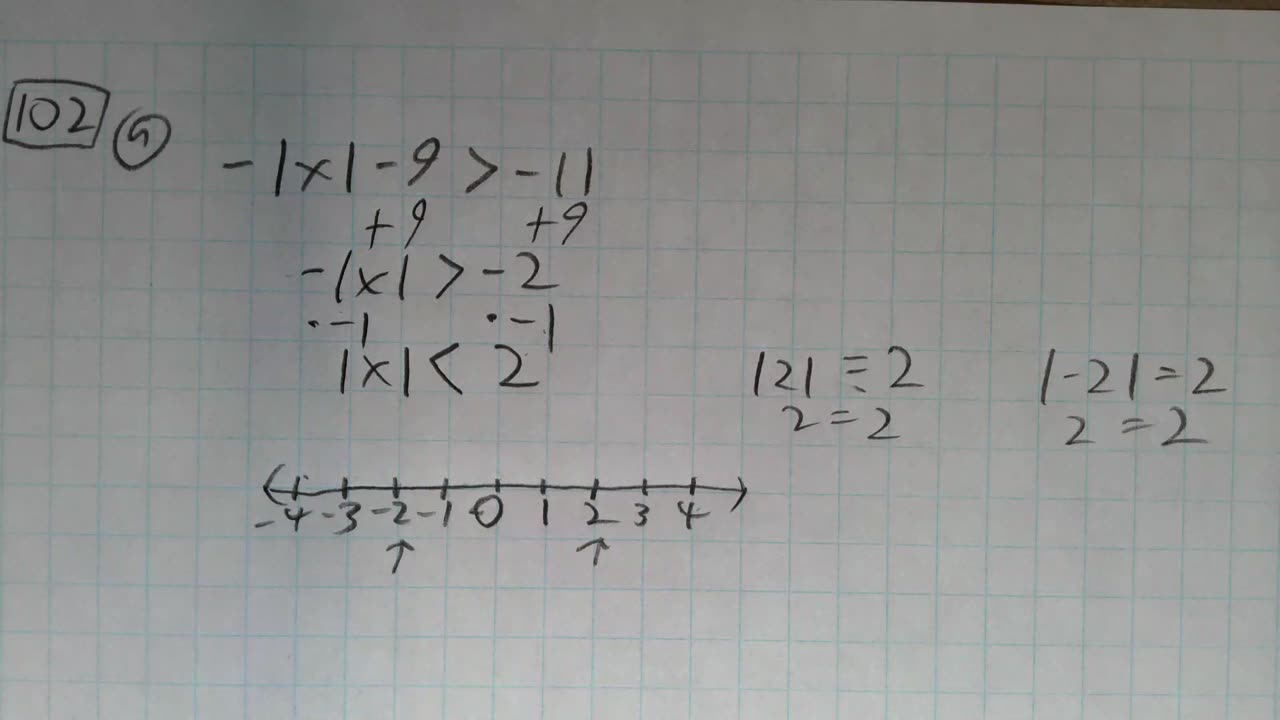 102 9
-|x| - 9 > -11
+9 +9
-|x| > -2
· -1 · -1
|x| < 2
|2| = 2 |-2| = 2
2 = 2 2 = 2
-4 -3 -2 -1 0 1 2 3 4
↑ ↑